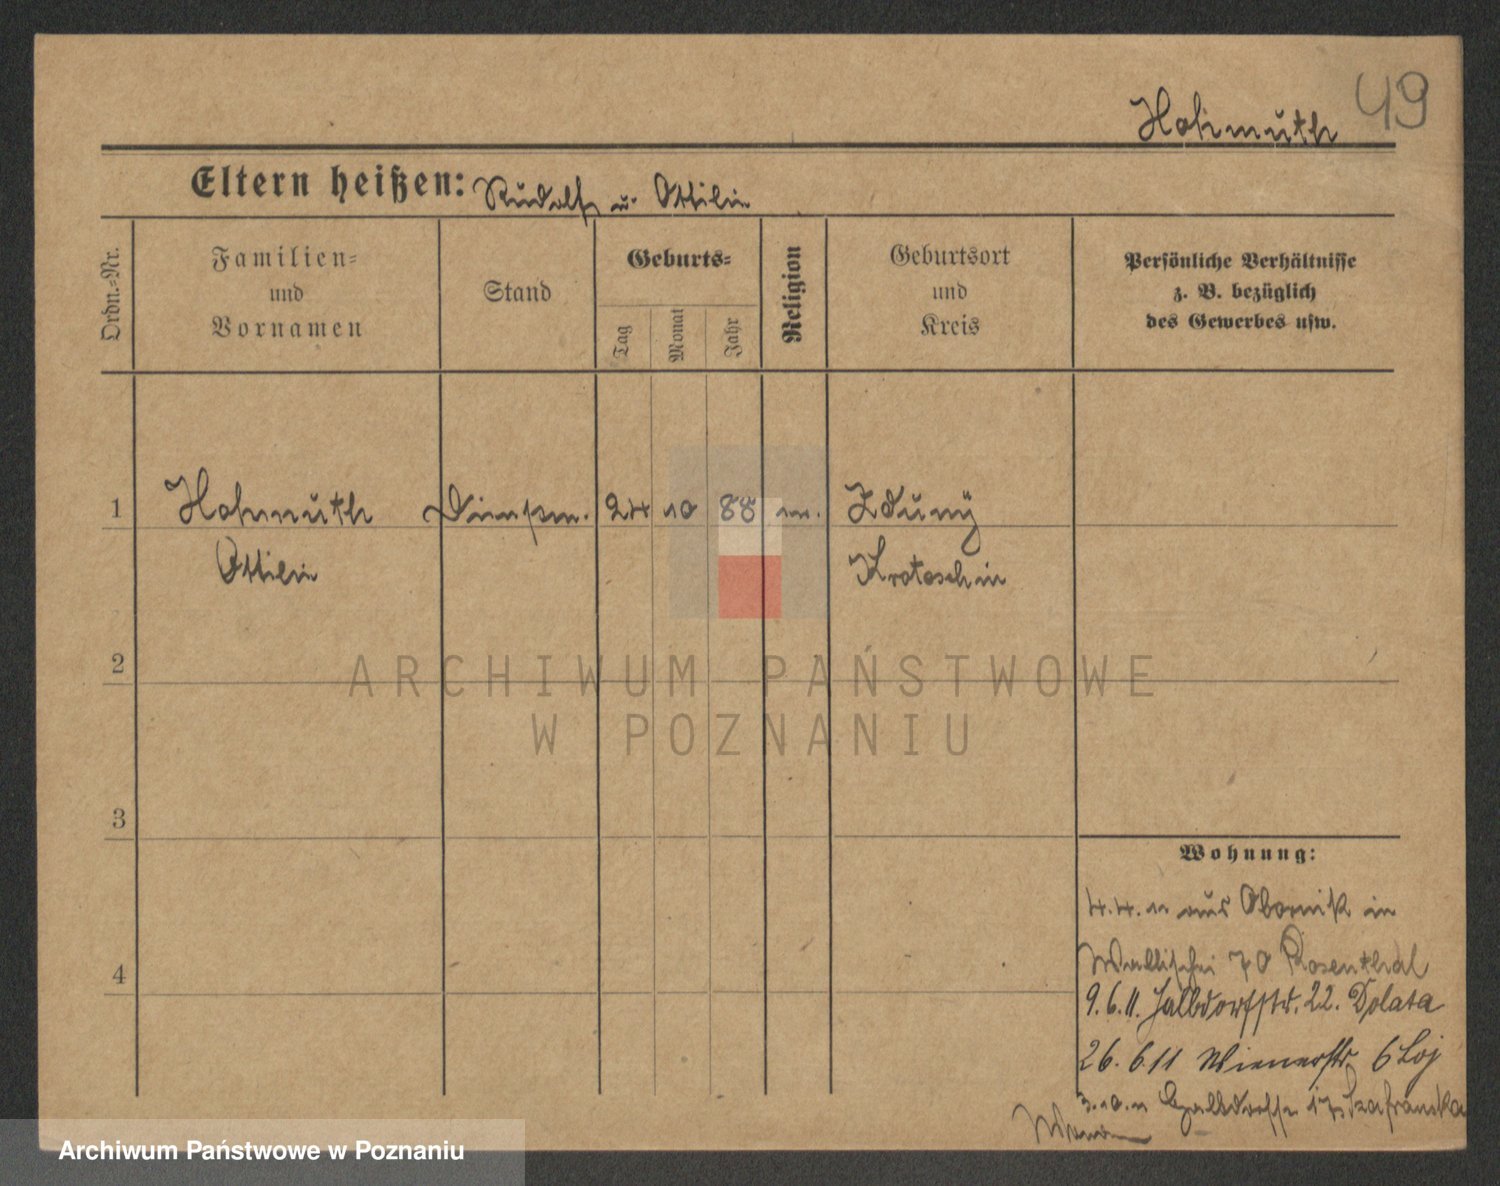 49
Hohmuth
Eltern heißen: Rudolf u. Ottilie
Ordn.=Nr.
Familien=
und
Vornamen
Stand
Geburts=
Tag
Monat
Jahr
Religion
Geburtsort
und
Kreis
Persönliche Verhältnisse
z. B. bezüglich
des Gewerbes usw.
1 Hohmuth 24 10 88 Zduny
Ottilie Krotoschin
2
ARCHIWUM PAŃSTWOWE
W POZNANIU
3
Wohnung:
4.4.11 aus Obornik in
Wallischei 70 Rosenthal
4
9.6.11. Halbdorfstr. 22. Dolata
26.6.11 Wienerstr 6 Loj
3.10.11 Halbdorfstr 17 Szafranska
Archiwum Państwowe w Poznaniu